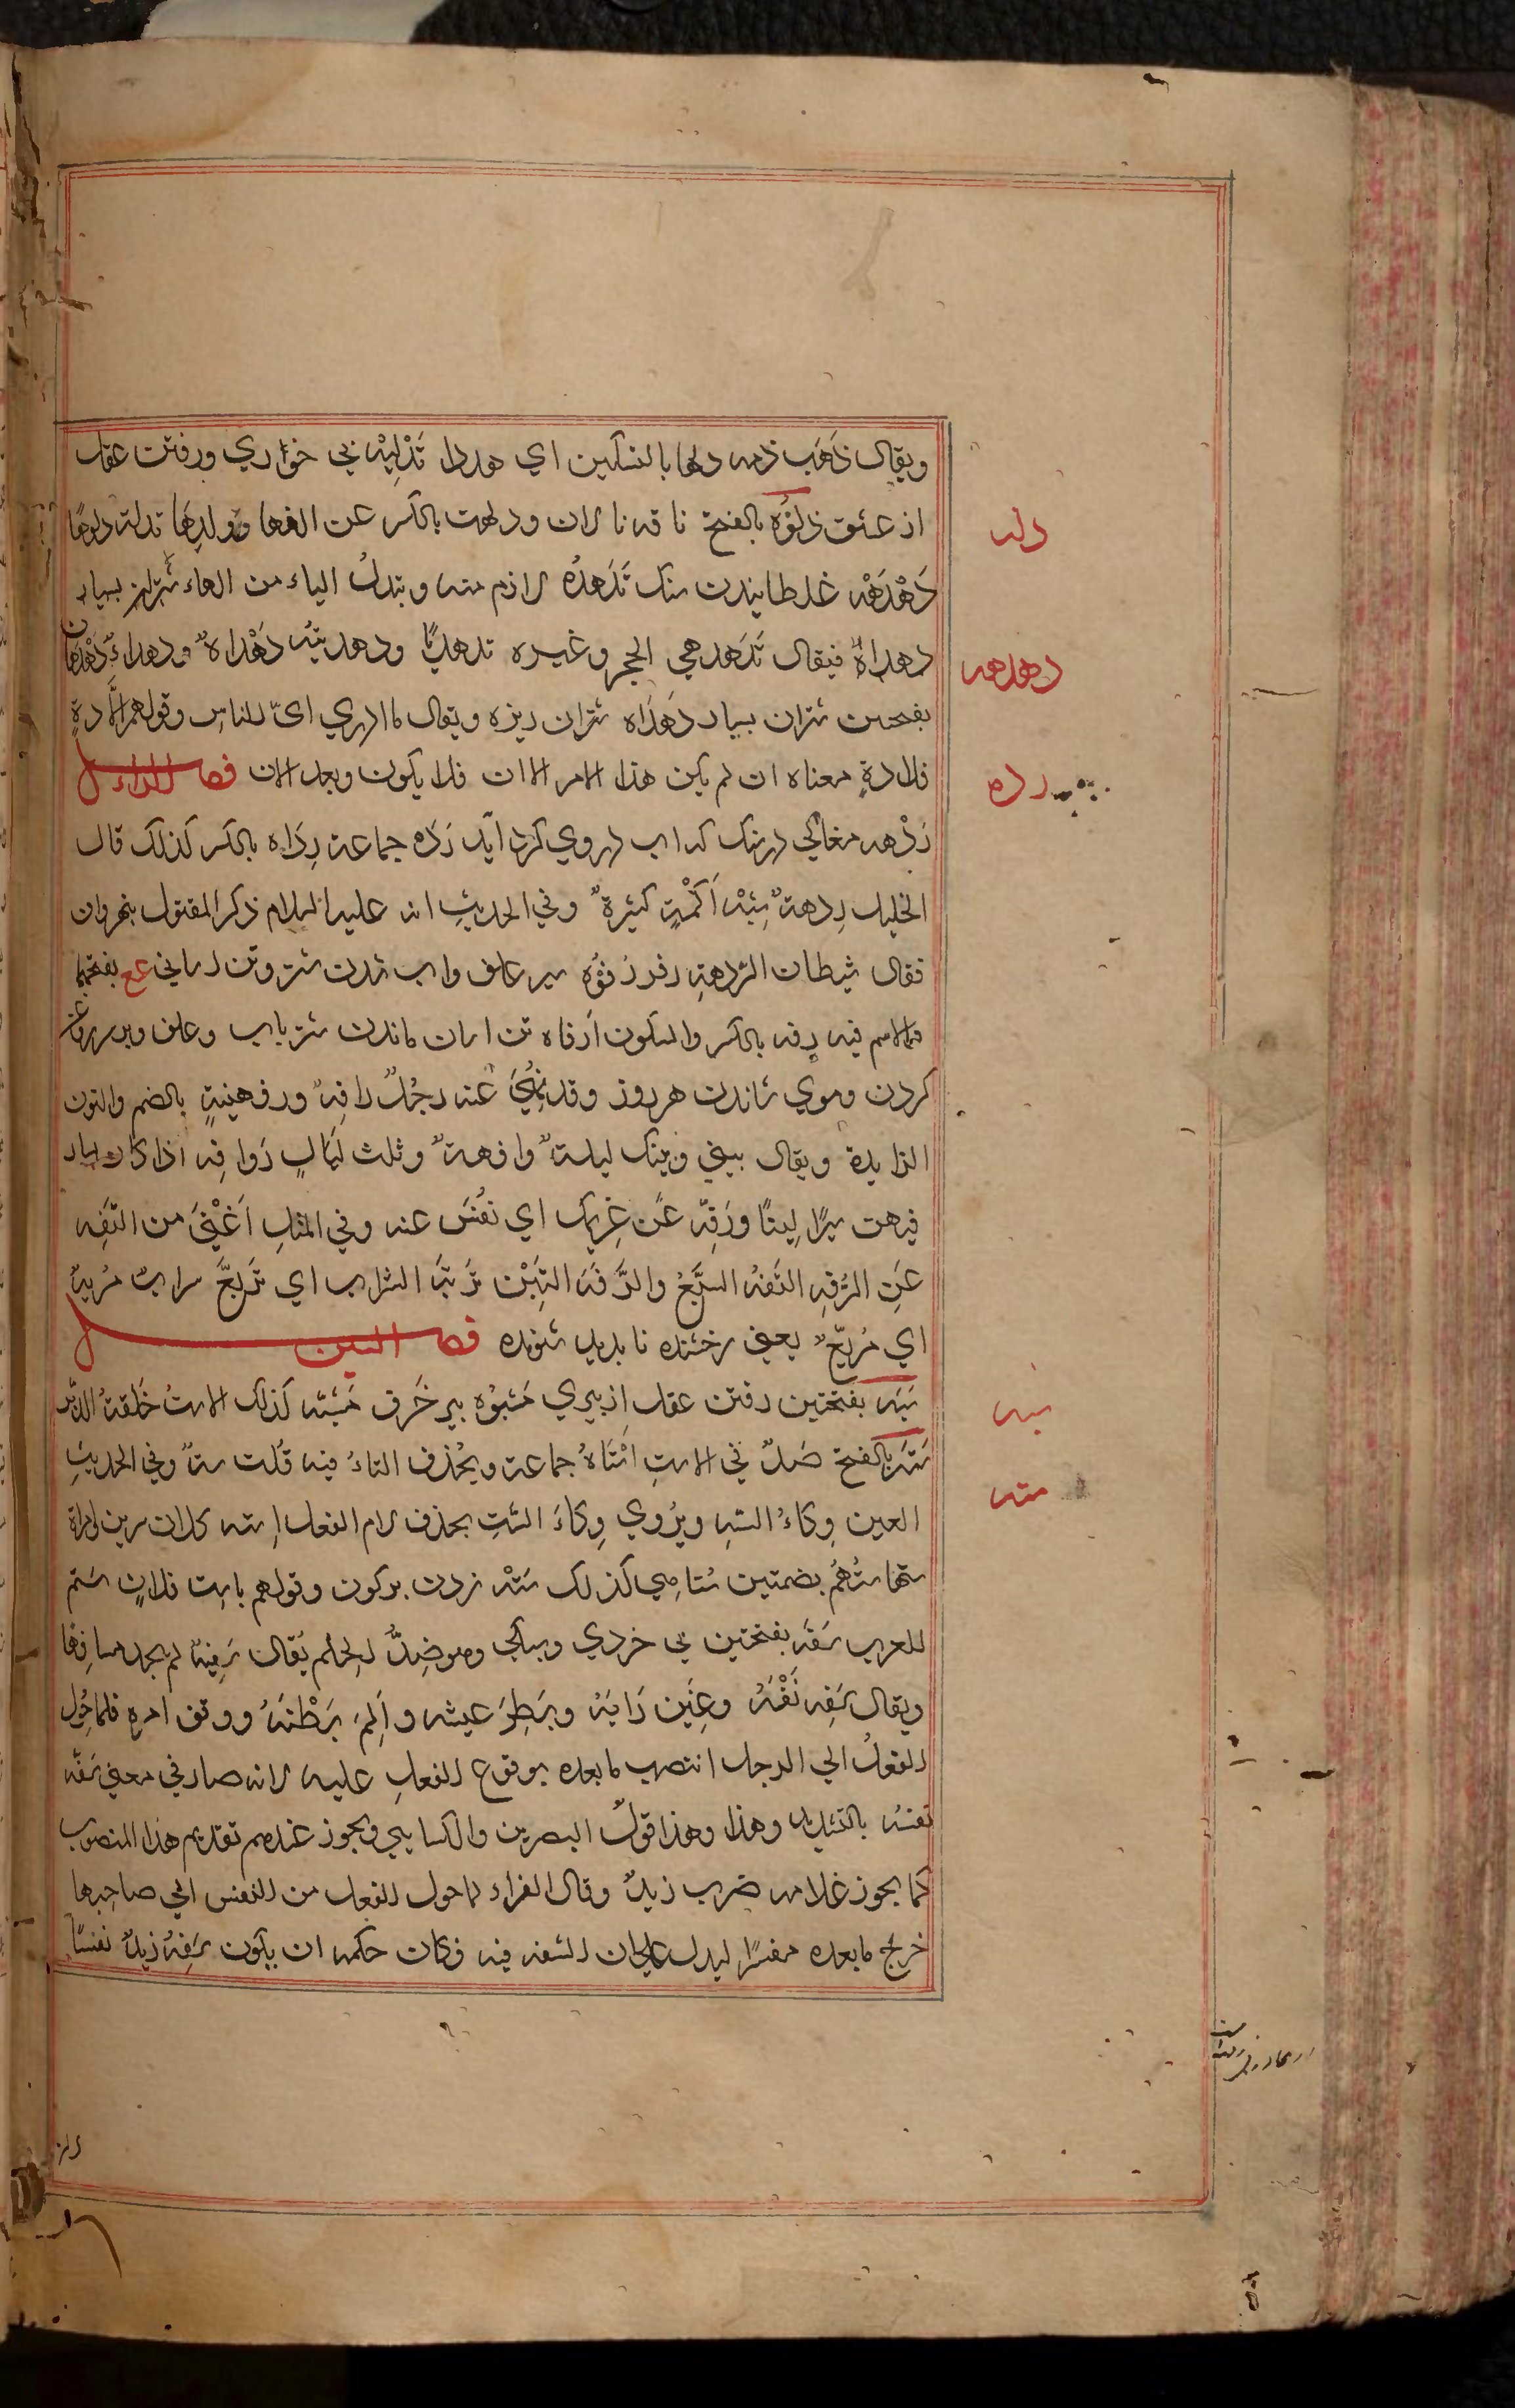 ويقال ذهب دمه دلها بالتسكين اي هدرا تَدْلِيْه بي خواري ورفتن عقل
دله
از عشق دَلُوْه بالفتح ناقه نالان ودلهت بالكسر عن الفها وولدها تدله دلوها
دَهْدَهْه غلطانیدن سنك تَدَهْدُه لازم منه وتبدل الياء من الهاء شتران بسيار
دهداةً فيقال تَدَهدهي الحجر وغيره تدهديًا ودهديته دَهْدَاة ودهداءً دَهْدَهان
دهدهه
بفتحين شتران بسيار دَهْدَاه شتران ريزه ويقال ما ادري اىّ للناس وقولهم اِلّا دهٍ
فلا دهٍ معناه ان لم يكن هذا الامر الان فلا يكون وبعد الان فصل الراء
رده
رَدْهه مغاكي در سنك كه اب دروي كرد آيد رَدَه جماعة رِدَاه بالكسر كذلك قال
الخليل ردهةٌ شِبْه اَكَمْةٍ كبيرةٌ وفي الحديث انه عليه السلام ذكر المقتول بنهروان
فقال شيطان الرَّدهةِ رفه رُفُوْه سير علف واب شدن شتر وتن اساني عع بفتحها
والاسم فيه رفه بالكسر والسكون اَرفاه تن اسان ماندن شتر باب وعلف
كردن وموي شاندن هر روز وقد نُهِيَ عنه رجُلٌ رافِهٌ ورفهنيةٍ بالضم والنون
الزايدة ويقال بيني وبينك ليلةٌ رافهةٌ وثلث لَيَالٍ رَوافِه اذا كان يسار
فيهن سيرًا لِينًا ورَفِّه عَن غريمك اي نَفِّس عنه وفي المثل اَغْنَىٰ من التفه
عَنِ الرُّفه التفه السَّبُعُ والرُّفَه التِبْن تَرَيَّه السَّراب اي تَرَيَّع سرابٌ مُرَيّه
اي مُرَيّعٌ يعني رخشنده نا بديد شونده فصل السين
سَبَه بفتحتين رفتن عقل از پيري مَسْبُوْه پير خَرف مُسَبَّه كذلك الاستُ حَلقة الدُّبر
سبه
سَتَه بالفتح صَلٌ في الاستِ اَسْتَاهُ جماعة ويُحذف التاءُ فيه قُلت سهٌ وفي الحديثِ
سته
العين وِكاءُ السَّهِ ويرُوي وِكاءَ السَّتِ بحذف لام الفعل استه كلان سرين وامراة
ستهاء ستُهُم بضمتين ستاهي كذلك سَتْه زدن بركون وقولهم باست فلانٍ شتم
للعرب سَفَه بفتحتين بي خردي وسبكي وهو ضِدُّ الحلم يُقال سَفِيه لم يجد مسافِها
ويقال سَفِه نَفْسَه وغَبِن رَايَه وبَطِرَ عيشه واَلِمَ بَطْنَه ووفق امره فلما حُوِّل
الفعلُ الي الرجل انتصب ما بعده بوقوع الفعلِ عليه لانه صار في معني سَفَّه
نفسَه بالتشديد وهذا وهذا قولُ البصرين والكسايي ويجوز عندهم تقديم هذا المنصوب
كما يجوز غلامه ضرب زيدٌ وقال الفراء لما حول الفعل من النفس الي صاحبها
خرج ما بعده مفسرًا ليدل علي ان السفه فيه وكان حكمه ان يكون سَفِهَ زيدٌ نفسًا